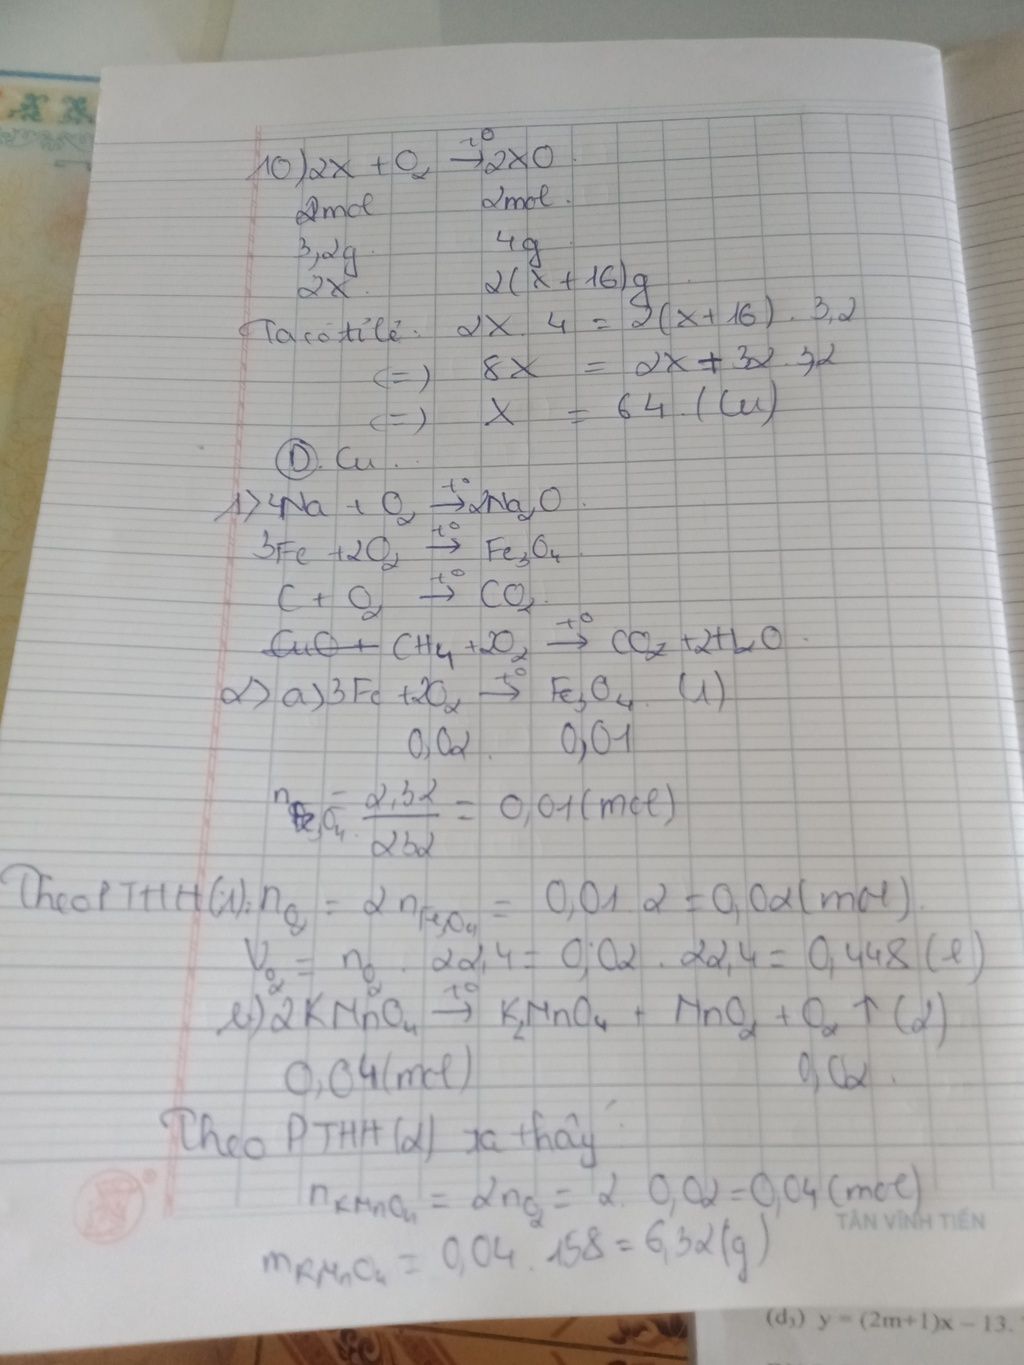 10) 2X + O₂ →t⁰ 2XO
2mol 2mol.
3,2g 4g
2X. 2(X+16)g
Ta có tỉ lệ: 2X. 4 = 2(X+16). 3,2
(=) 8X = 2X + 32. 3,2
(=) X = 64. (Cu)
D. Cu.
1> 4Na + O₂ →t⁰ 2Na₂O.
3Fe + 2O₂ →t⁰ Fe₃O₄
C + O₂ →t⁰ CO₂.
CuO + CH₄ + 2O₂ →t⁰ CO₂ + 2H₂O.
2> a) 3Fe + 2O₂ →t⁰ Fe₃O₄. (1)
0,02. 0,01
nFe₃O₄ = 2,32/232 = 0,01 (mol)
Theo PTHH (1): nO₂ = 2nFe₃O₄ = 0,01. 2 = 0,02 (mol).
VO₂ = nO₂. 22,4 = 0,02. 22,4 = 0,448 (l)
b) 2KMnO₄ →t⁰ K₂MnO₄ + MnO₂ + O₂ ↑ (2)
0,04 (mol) 0,02.
Theo PTHH (2) ta thấy:
nKMnO₄ = 2nO₂ = 2. 0,02 = 0,04 (mol)
TÂN VĨNH TIẾN
mKMnO₄ = 0,04. 158 = 6,32 (g)
(d₃) y = (2m+1)x – 13.